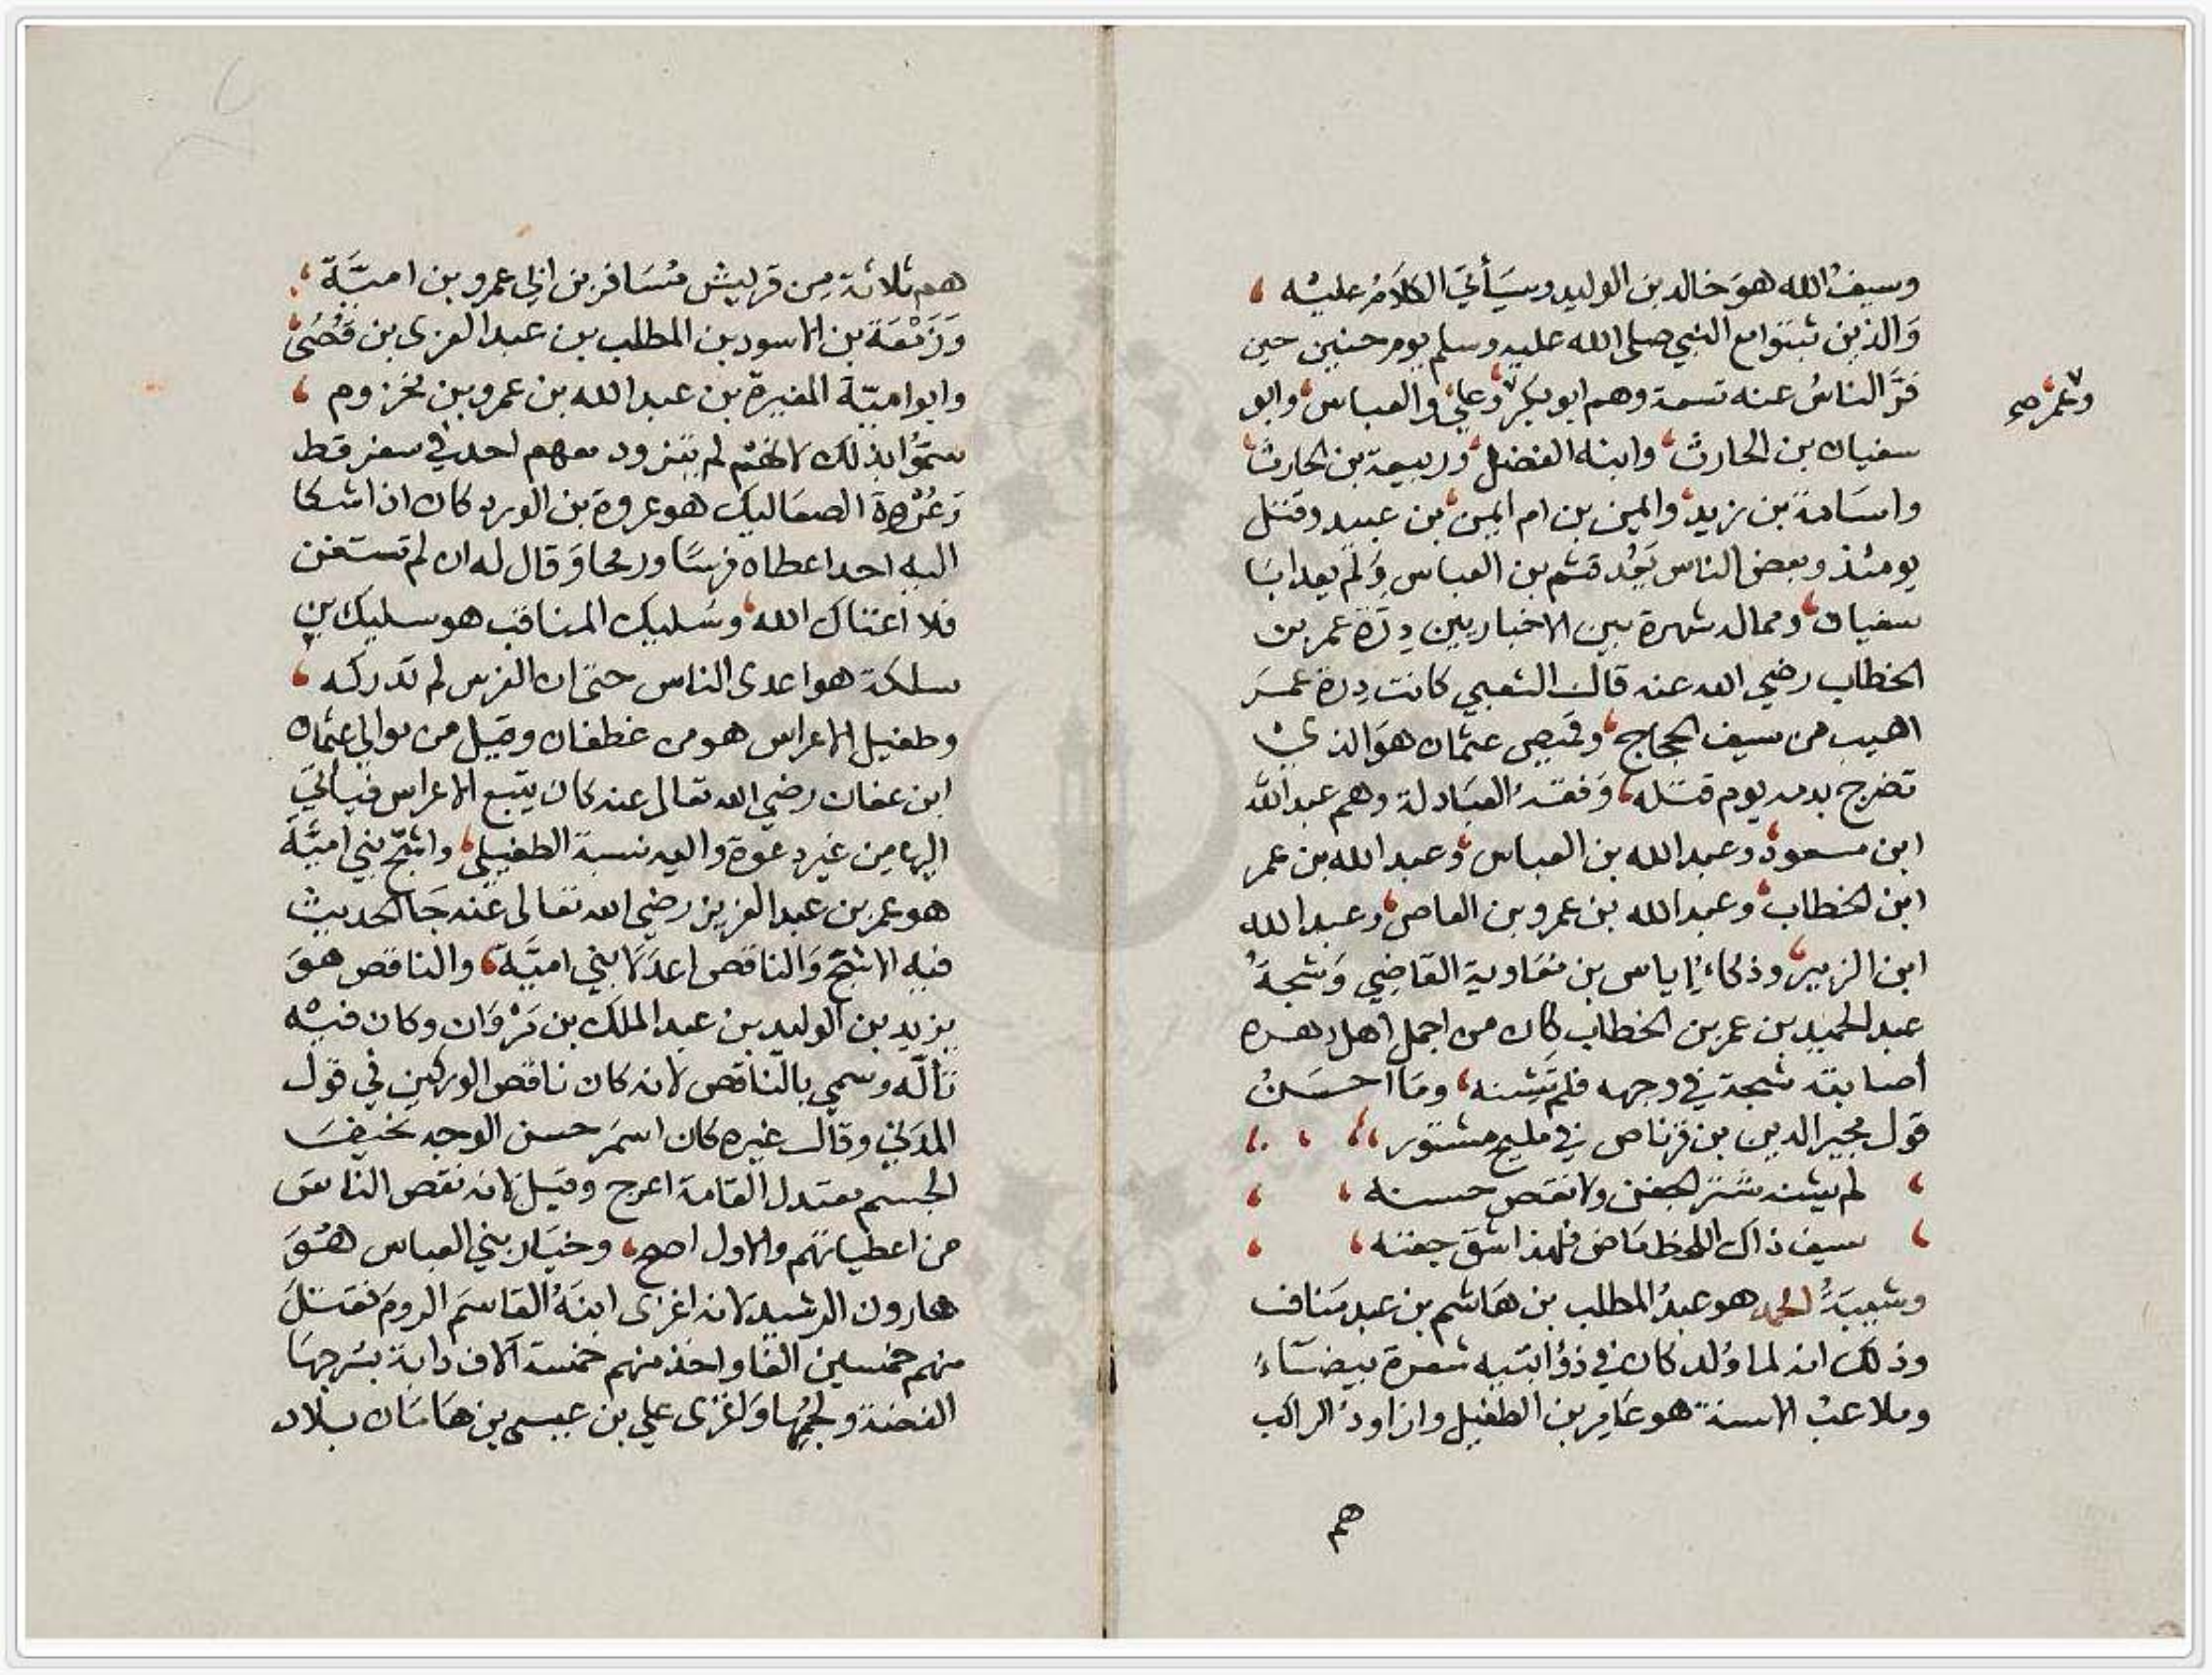 وسيفُ الله هوَ خالد بن الوليد وسيَأتيَ الكلَامُ عليْه
وَالذين ثبتوا مع النبي صلى الله عليه وسلم يوم حنين حين
فرَّ الناسُ عنه تسعة وهم ابو بكر وعلي والعباس وابو
وعمر صح
سفيان بن الحارث وابنه الفضل وربيعة بن الحارث
واسَامة بن زيد وايمن بن ام ايمن بن عبيد وقتل
يومئذ وبعض الناس يَعُد قثم بن العباس وَلم يعد ابَا
سفيان ومما له شهرة بين الاخباريين دِرّة عمر بن
الخطاب رضي الله عنه قال الشعبي كانت دِرة عمَر
اهيب من سيف الحجاج وقميص عثمان هوَ الذي
تضرج بدمه يوم قتله وَفقهُ العبَادلة وهم عبد الله
ابن مسعود وعبد الله بن العباس وعبد الله بن عمر
ابن الخطاب وعبد الله بن عمرو بن العاص وعبد الله
ابن الزبير وذكاءُ إياس بن معَاوية القاضِي وَشجةُ
عبد الحميد بن عمر بن الخطاب كان من اجمل اهل دهره
أصابته شجة في وجهه فلم تَشِنه ومَا احسَنُ
قول مجير الدين بن قرناص في مليح مشتور
لم يشنه شتر الجفن ولا نقص حسنه
سيف ذاك اللحظ مَاض فلهذا شق جفنه
وشيبَةُ الحمد هو عبدُ المطلب بن هَاشم بن عبد مَناف
وذلك انه لما وُلد كان في ذؤابتيه شعرة بيضَاءُ
وملاعبُ الاسنة هو عَامِر بن الطفيل وازاودُ الراكب
هم
هم ثلاثة مِن قريش مُسَافر بن ابي عمرو بن اميَّة
وَزَمْعَة بن الاسود بن المطلب بن عبد العزى بن قصُي
وابو اميّة المغيرة بن عبد الله بن عمرو بن مخزوم
سمّوُا بذلك لانهم لم يتزود معهم احد في سفر قط
وَعُرْوة الصعَاليك هو عروة بن الورد كان اذا شكا
اليه احد اعطاه فرسًا ورمحا وَقال له ان لم تستغن
فلا اغناك الله وسُليك المناقب هو سليك بن
سلكة هو اعدى الناس حتى ان الفرس لم تدركه
وطفيل الاعراس هو من غطفان وقيل من موالي عثمان
ابن عفان رضي الله تعالى عنه كان يتبع الاعراس فيأتيَ
اليها مِن غير دعوة واليه نسبة الطفيلي واشجّ بني اميّة
هو عمر بن عبد العزيز رضي الله تعالى عنه جَا الحديث
فيه الاشجّ وَالناقص اعدَلا بني اميَّة والناقص هوَ
يزيد بن الوليد بن عبد الملك بن مَرْوَان وكان فيْه
تألّه وسمي بالناقص لانه كان ناقص الوركين في قول
المدَني وقال غيره كان اسمَر حسن الوجه نحيفَ
الجسم معتدل القامة اعرج وقيل لانه نقص الناسَ
من اعطياتهم والاول اصح وخيَار بني العباس هُوَ
هارون الرشيد لانه اغزى ابنَهُ القاسَم الرومَ فقتلَ
منهم خمسين الفا واخذ منهم خمسة آلاف دابة بسُرجهَا
الفضة ولجمُها وَاغزى علي بن عيسى بن هَامَان بلاد